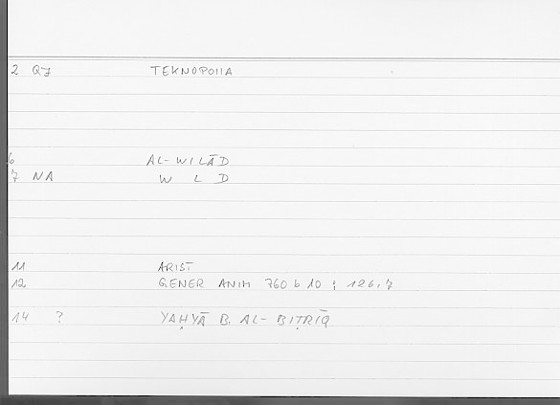 2 QJ TEKNOPOIIA
6 AL-WILĀD
7 NA W L D
11 ARIST
12 GENER ANIM 760 b 10 ; 126,7
14 ? YAḤYĀ B. AL-BIṬRĪQ